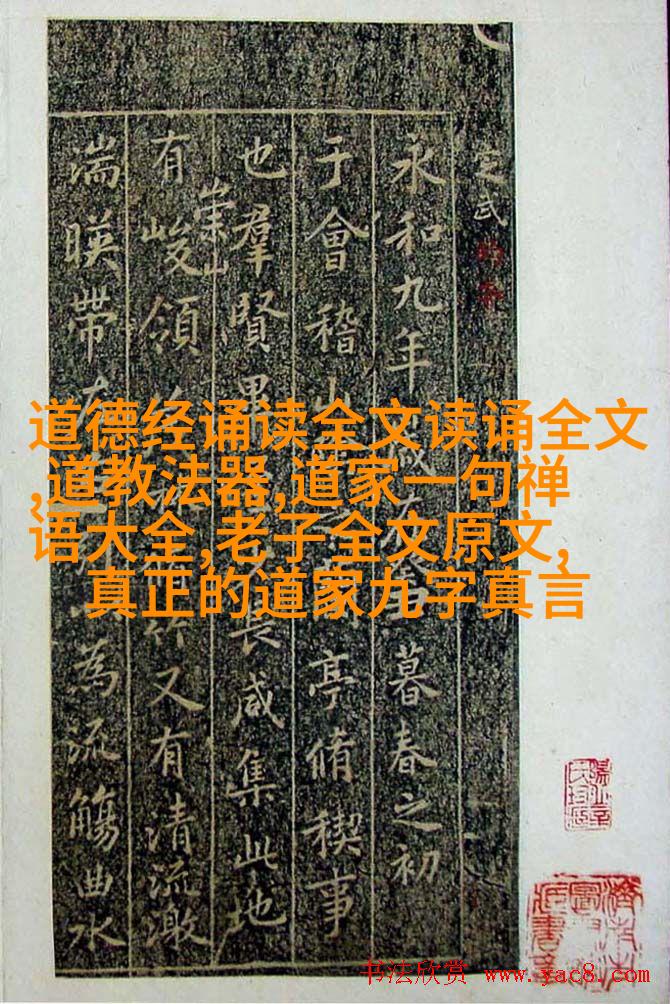 定武
永和九年歲在暮春之初
于會稽山亭脩稧事
也羣賢畢長咸集此地
有崇山峻領林脩竹又有清流激
湍暎帶左為流觴曲水
道德经诵读全文读诵全文
,道教法器,道家一句禅
语大全,老子全文原文,
真正的道家九字真言
书法欣赏 www.yac8.com